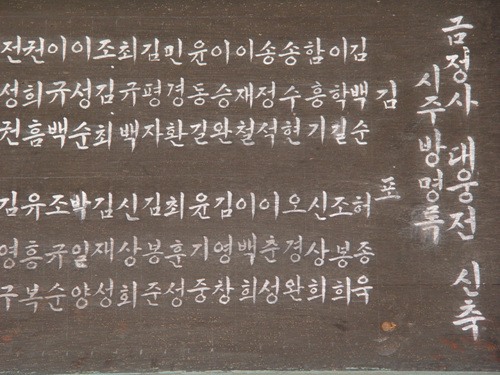 금정사 대웅전 신축
시주 방명록
김포
김백순
이학길
함흥기
송수현
송정석
이재철
이승완
윤동길
민경환
김평자
최규백
조김최
이성순
이규백
권희흠
전성천
허종욱
조봉희
신상희
오경완
이춘성
이백희
김영창
윤기중
최훈성
김봉준
신상회
김재성
박일양
조규순
유흥복
김영구